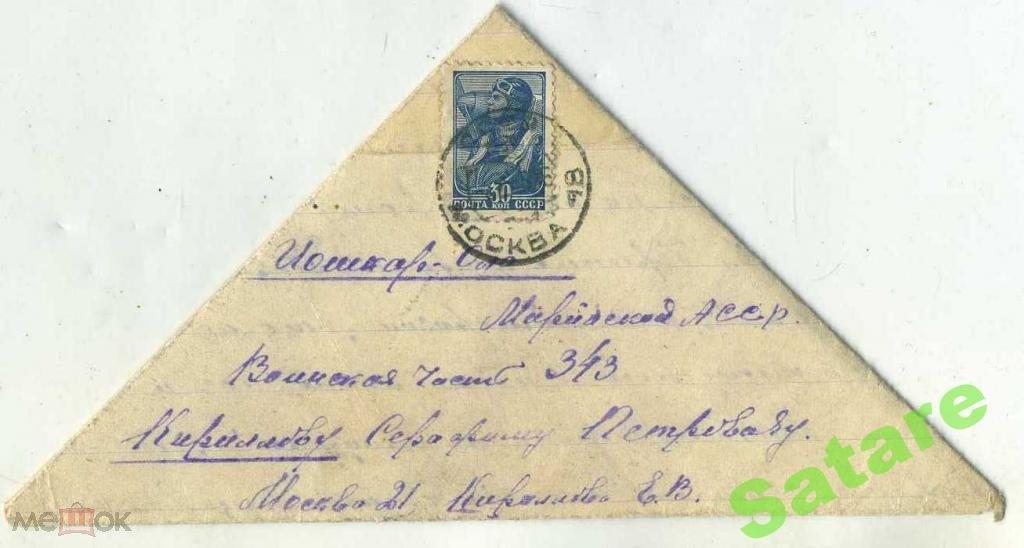 30
ПОЧТА КОП СССР
МОСКВА 18
Йошкар-Ола
Марийской АССР.
Воинская часть 343
Кириллову Серафиму Петровичу.
Москва 21 Кириллова Е.В.
Satare
мешок